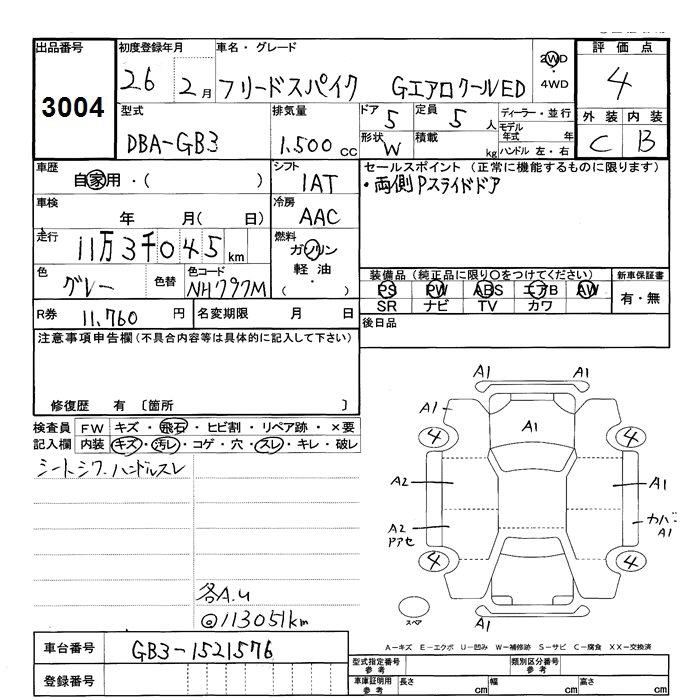 出品番号 初度登録年月 車名・グレード 2WD 評価点
3004 26 2月 フリードスパイク GエアロクールED ・ 4
4WD
型式 排気量 ドア 5 定員 5人 ディーラー・並行 外装 内装
DBA-GB3 1.500cc 形状 W 積載 kg モデル年式 年 C B
ハンドル 左・右
車歴 シフト セールスポイント (正常に機能するものに限ります)
自家用・( ) 1AT ・両側Pスライドドア
車検 年 月( 日) 冷房 AAC
走行 11万3千045km 燃料 ガソリン
軽油
・
( )
色 グレー 色替 色コード NH797M 装備品(純正品に限り○をつけてください) 新車保証書
PS PW ABS エアB AW 有・無
SR ナビ TV カワ
R券 11,760円 名変期限 月 日 後日品
注意事項申告欄(不具合内容等は具体的に記入して下さい)
修復歴 有 〔箇所 〕
検査員 FW キズ・飛石・ヒビ割・リペア跡・×要
記入欄 内装 キズ・汚レ・コゲ・穴・スレ・キレ・破レ
シートシワ.ハンドルスレ
各A.U
@113051km
A1 A1
A1
A1
4 4
A2 A1
A2 カバ
アアセ A1
4 4
A1
スペア
A-キズ E-エクボ U-凹み W-補修跡 S-サビ C-腐食 XX-交換済
車台番号 GB3-1521576
登録番号
型式指定番号 参考 類別区分番号 参考
車庫証明用 参考 長さ cm 幅 cm 高さ cm